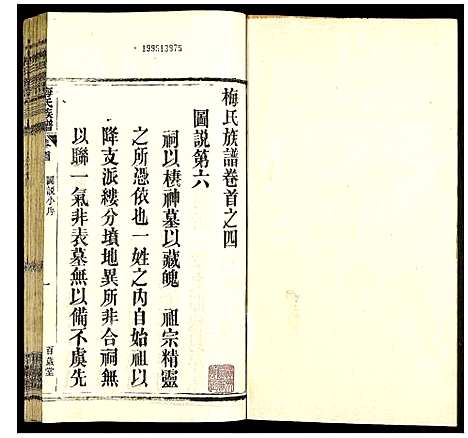 199513975
梅氏族譜卷首之四
圖説第六
祠以棲神墓以藏魄 祖宗精靈
之所憑依也一姓之内自始祖以
降支派縷分墳地異所非合祠無
以聯一氣非表墓無以備不虞先
梅氏族譜 卷首 圖説小序 一 百歲堂